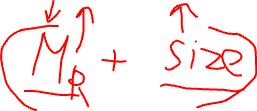 Mp + size